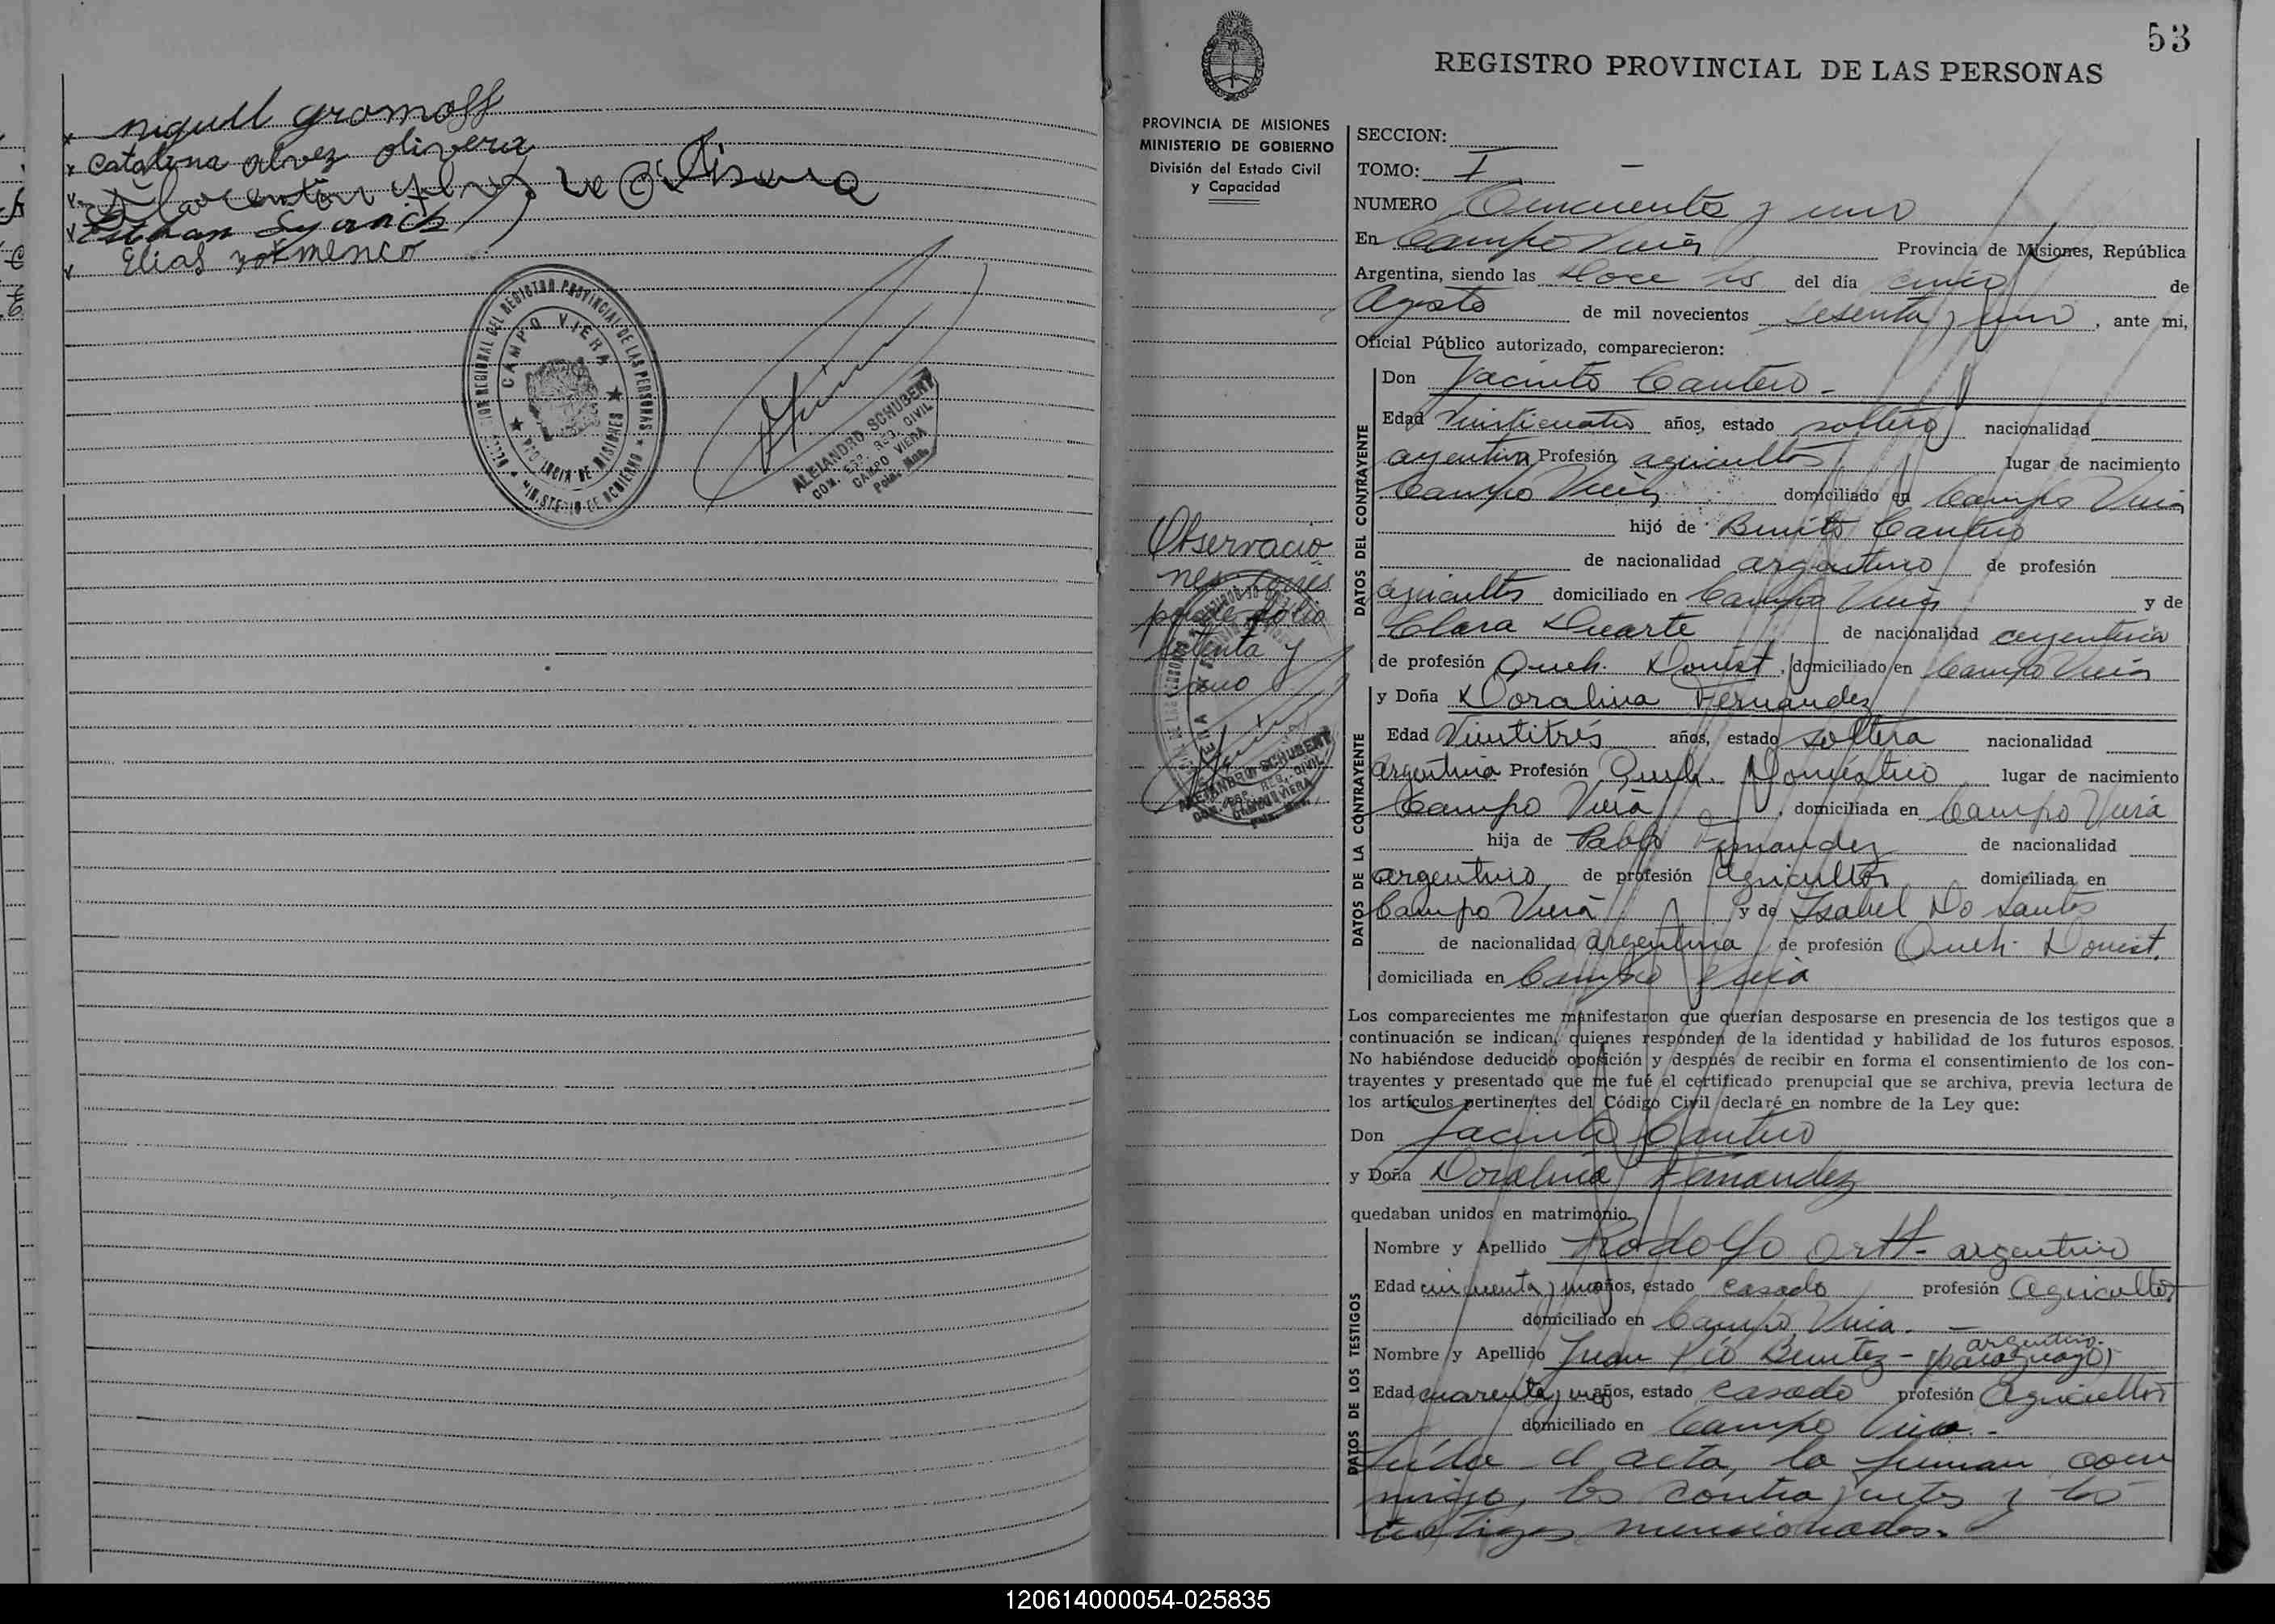 miguel gromoff
catalina alvez olivera
Esteban
Elias
OFICINA SECCIONAL DEL REGISTRO PROVINCIAL DE LAS PERSONAS
CAMPO VIERA
PROVINCIA DE MISIONES
MINISTERIO DE GOBIERNO
ALEJANDRO SCHUBERT
COM. ESP. REG. CIVIL
CAMPO VIERA
Pcia. Mnes.
53
REGISTRO PROVINCIAL DE LAS PERSONAS
PROVINCIA DE MISIONES
MINISTERIO DE GOBIERNO
División del Estado Civil
y Capacidad
Observacio
nes corres
ponde folio
setenta y
uno
ALEJANDRO SCHUBERT
COM. ESP. REG. CIVIL
CAMPO VIERA
Pcia. Mnes.
SECCION:
TOMO: I
NUMERO Cincuenta y uno
En Campo Viera Provincia de Misiones, República
Argentina, siendo las doce hs del día cinco de
Agosto de mil novecientos sesenta y uno, ante mi,
Oficial Público autorizado, comparecieron:
DATOS DEL CONTRAYENTE
Don Jacinto Cantero -
Edad Veinticuatro años, estado soltero nacionalidad
argentina Profesión agricultor lugar de nacimiento
Campo Viera domiciliado en Campo Viera
hijó de Benito Cantero
de nacionalidad argentino de profesión
agricultor domiciliado en Campo Viera y de
Clara Duarte de nacionalidad argentina
de profesión Queh. Domést. domiciliado en Campo Viera
DATOS DE LA CONTRAYENTE
y Doña Doralina Fernandez
Edad Veintitrés años, estado soltera nacionalidad
argentina Profesión Queh. Doméstico lugar de nacimiento
Campo Viera domiciliada en Campo Viera
hija de Pablo Fernandez de nacionalidad
argentino de profesión Agricultor domiciliada en
Campo Viera y de Isabel Do Santos
de nacionalidad argentina de profesión Queh. Domést.
domiciliada en Campo Viera
Los comparecientes me manifestaron que querían desposarse en presencia de los testigos que a
continuación se indican, quienes responden de la identidad y habilidad de los futuros esposos.
No habiéndose deducido oposición y después de recibir en forma el consentimiento de los con-
trayentes y presentado que me fué el certificado prenupcial que se archiva, previa lectura de
los artículos pertinentes del Código Civil declaré en nombre de la Ley que:
Don Jacinto Cantero
y Doña Doralina Fernandez
quedaban unidos en matrimonio.
DATOS DE LOS TESTIGOS
Nombre y Apellido Rodolfo Ortt - argentino
Edad cincuenta y uno años, estado casado profesión Agricultor
domiciliado en Campo Viera. -
Nombre y Apellido Juan Pío Benitez - (paraguayo) argentino.
Edad cuarenta y uno años, estado casado profesión Agricultor
domiciliado en Campo Viera. -
Leída el acta, la firman con
migo, los contrayentes y los
testigos mencionados.
120614000054-025835